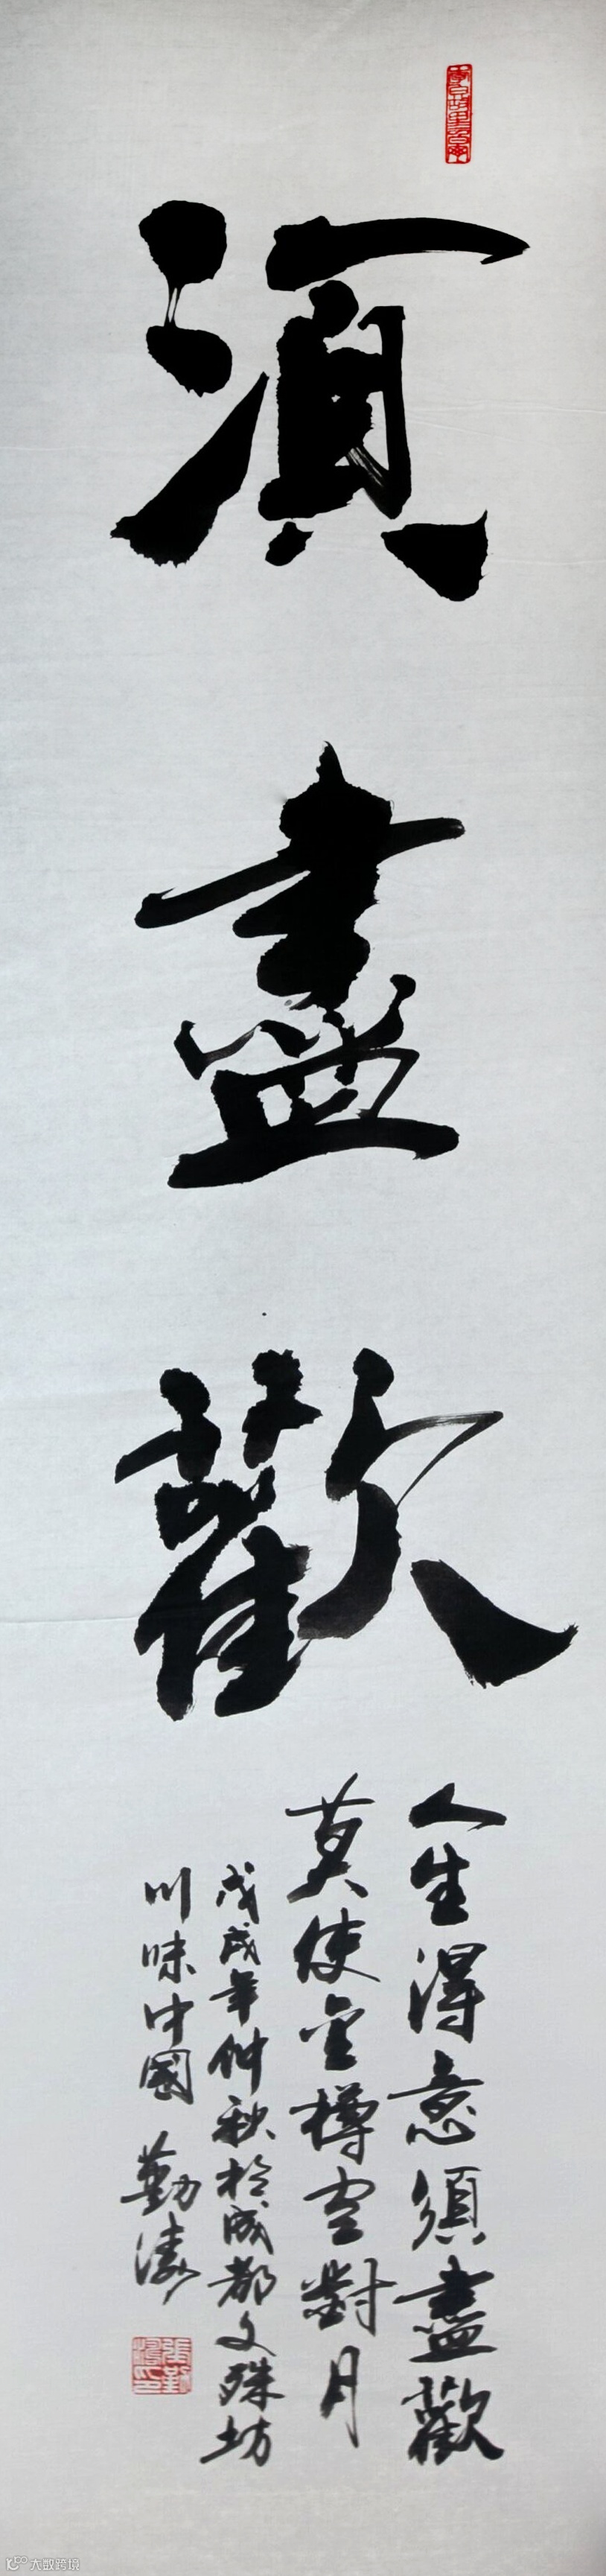 須
盡
歡
人生得意須盡歡
莫使金樽空對月
戊戌年仲秋於成都文殊坊
川味中國 勤濤
張勤濤印
大数跨境